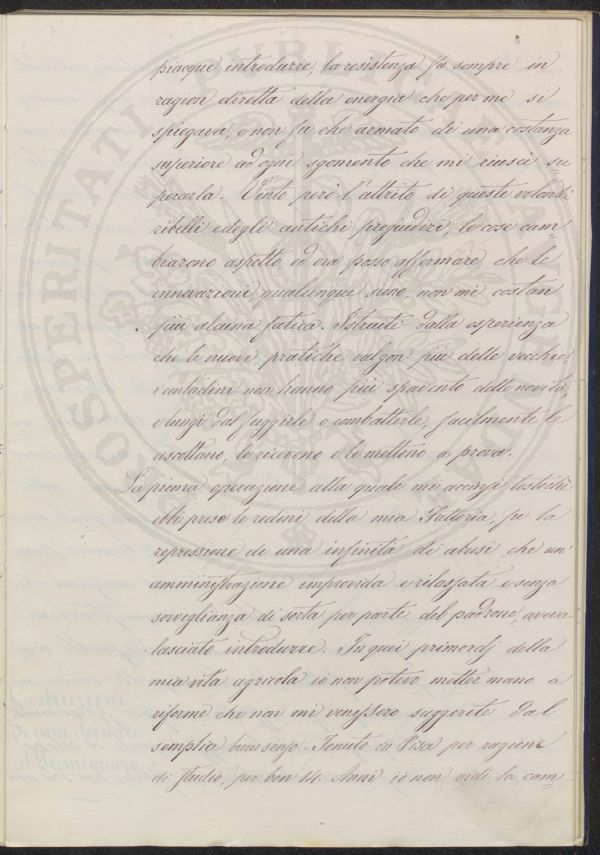 piacque introdurre, la resistenza fu sempre in
ragion diretta della energia che per me si
spiegava, e non fu che armato di una costanza
superiore ad ogni sgomento che mi riuscì su
perarla. Vinto però l'attrito di queste volontà
ribelli e degli antichi prejudizi, le cose cam
biarono aspetto, ed ora posso affermare che le
innovazioni qualunque sieno, non mi costan
più alcuna fatica. Istruiti dalla esperienza
che le nuove pratiche valgon più delle vecchie,
i contadini non hanno più spavento delle novità,
e lungi dal fuggirle o combatterle, facilmente le
ascoltano, le ricevono e le mettono a prova.
La prima operazione alla quale mi accinsi tostochè
ebbi preso le redini della mia Fattoria, fu la
repressione di una infinità di abusi che un'
amministrazione improvida e rilassata e senza
sorveglianza di sorta per parte del padrone, aveva
lasciato introdurre. In quei primordj della
mia vita agricola io non potevo metter mano a
riforme che non mi venissero suggerite dal
semplice buon senso. Tenuto in Pisa per ragione
di studio, per ben 14 Anni io non vidi la cam
PROSPERITATI PUBLICAE